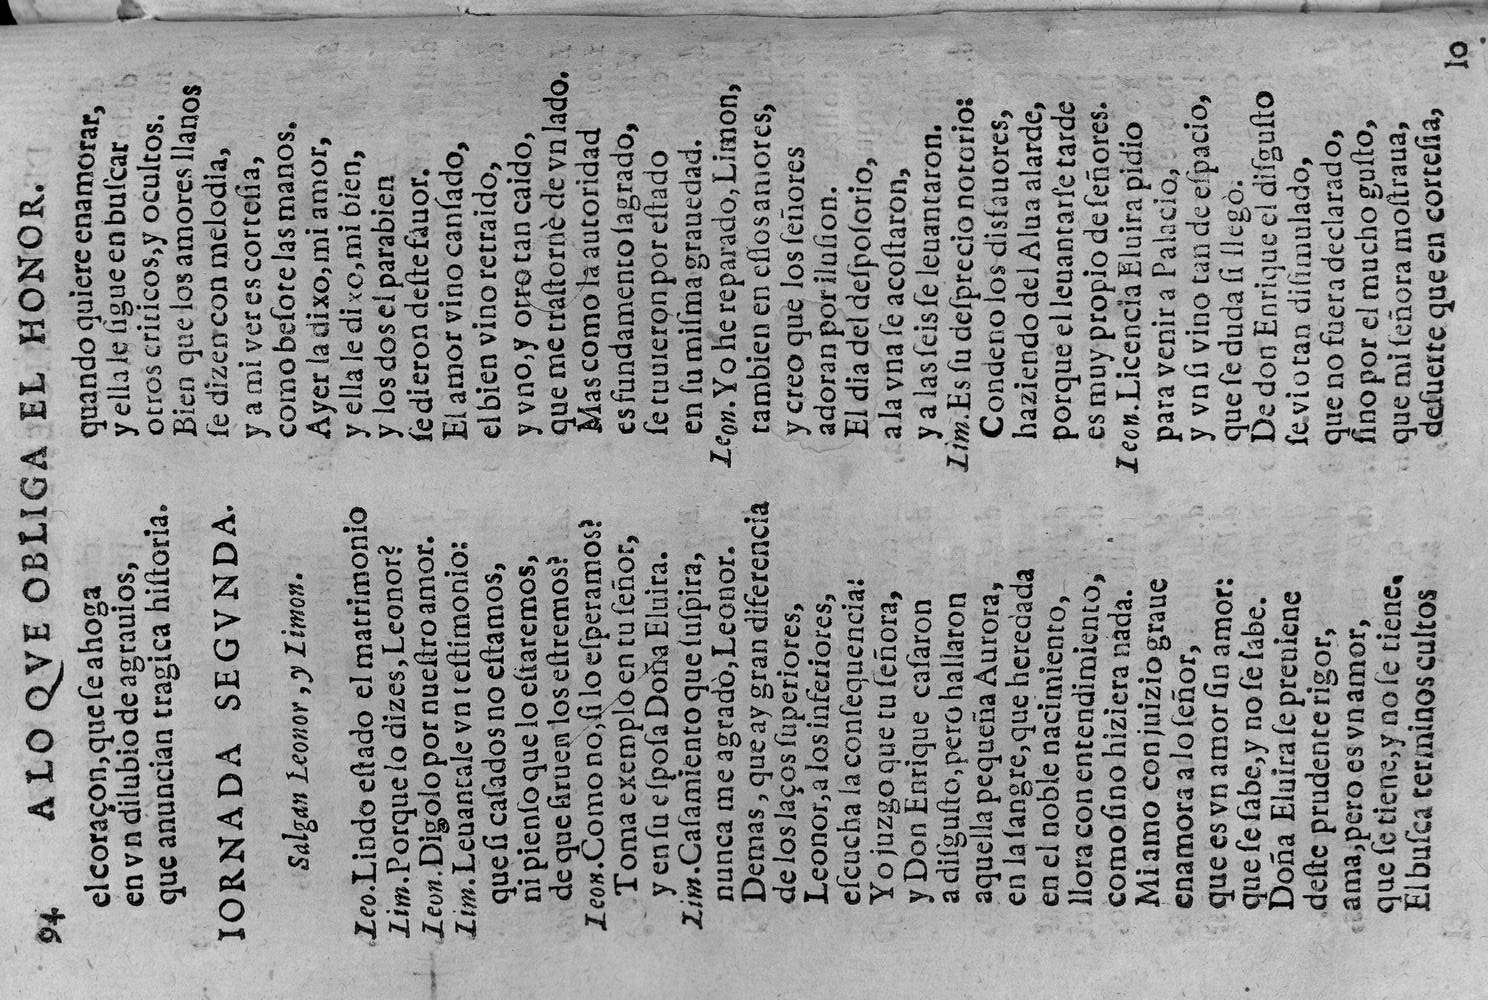 94 A LO QVE OBLIGA EL HONOR.
el coraçon, que ſe ahoga
en vn dilubio de agrauios,
que anuncian tragica hiſtoria.
IORNADA SEGVNDA.
Salgan Leonor, y Limon.
Leo. Lindo eſtado el matrimonio
Lim. Porque lo dizes, Leonor?
Leon. Digolo por nueſtro amor.
Lim. Leuantale vn teſtimonio:
que ſi caſados no eſtamos,
ni pienſo que lo eſtaremos,
de que ſiruen los eſtremos?
Leon. Como no, ſi lo eſperamos?
Toma exemplo en tu ſeñor,
y en ſu eſpoſa Doña Eluira.
Lim. Caſamiento que ſuſpira,
nunca me agradò, Leonor.
Demas, que ay gran diferencia
de los laços ſuperiores,
Leonor, a los inferiores,
eſcucha la conſequencia:
Yo juzgo que tu ſeñora,
y Don Enrique caſaron
a diſguſto, pero hallaron
aquella pequeña Aurora,
en la ſangre, que heredada
en el noble nacimiento,
llora con entendimiento,
como ſino hiziera nada.
Mi amo con juizio graue
enamora a lo ſeñor,
que es vn amor ſin amor:
que ſe ſabe, y no ſe ſabe.
Doña Eluira ſe preuiene
deſte prudente rigor,
ama, pero es vn amor,
que ſe tiene, y no ſe tiene.
El buſca terminos cultos
quando quiere enamorar,
y ella le ſigue en buſcar
otros criticos, y ocultos.
Bien que los amores llanos
ſe dizen con melodia,
y a mi ver es corteſia,
como beſote las manos.
Ayer la dixo, mi amor,
y ella le dixo, mi bien,
y los dos el parabien
ſe dieron deſte fauor.
El amor vino canſado,
el bien vino retraido,
y vno, y otro tan caido,
que me traſtornè de vn lado.
Mas como la autoridad
es fundamento ſagrado,
ſe tuuieron por eſtado
en ſu miſma grauedad.
Leon. Yo he reparado, Limon,
tambien en eſſos amores,
y creo que los ſeñores
adoran por iluſion.
El dia del deſpoſorio,
a la vna ſe acoſtaron,
y a las ſeis ſe leuantaron.
Lim. Es ſu deſprecio notorio:
Condeno los disfauores,
haziendo del Alua alarde,
porque el leuantarſe tarde
es muy propio de ſeñores.
Leon. Licencia Eluira pidio
para venir a Palacio,
y vn ſi vino tan de eſpacio,
que ſe duda ſi llegò.
De don Enrique el diſguſto
ſe vio tan diſsimulado,
que no fuera declarado,
ſino por el mucho guſto,
que mi ſeñora moſtraua,
deſuerte que en corteſia,
lo